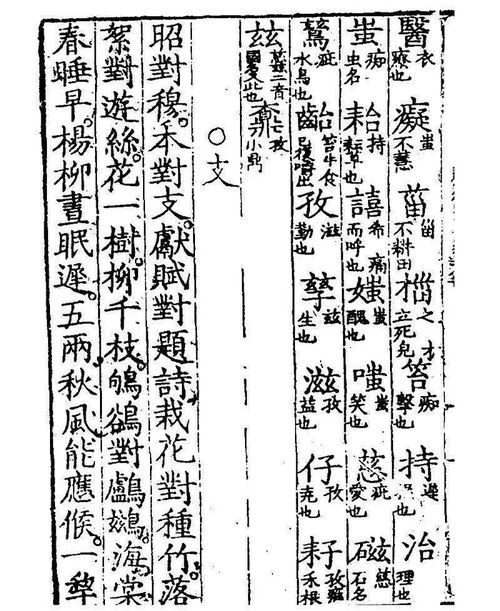 醫衣療也 癡蚩不慧 菑甾不耕田 椔之才立死皃 笞痴擊也 持遲也 治理也
蚩痴虫名 耛持耘草也 譆希痛而呼也 媸蚩醜也 嗤蚩笑也 慈疵愛也 磁慈石名
鶿疵水鳥也 齝笞牛食已復嚼出 孜滋勤也 孳兹生也 滋孜益也 仔孜克也 耔孜雍禾根
兹二音國名此也 小鼎
○支
昭對穆。本對支。獻賦對題詩。栽花對種竹。落
絮對遊絲。花一樹。柳千枝。鴝鵒對鸕鷀。海棠
春睡早。楊柳晝眠遲。五兩秋風能應候。一犂